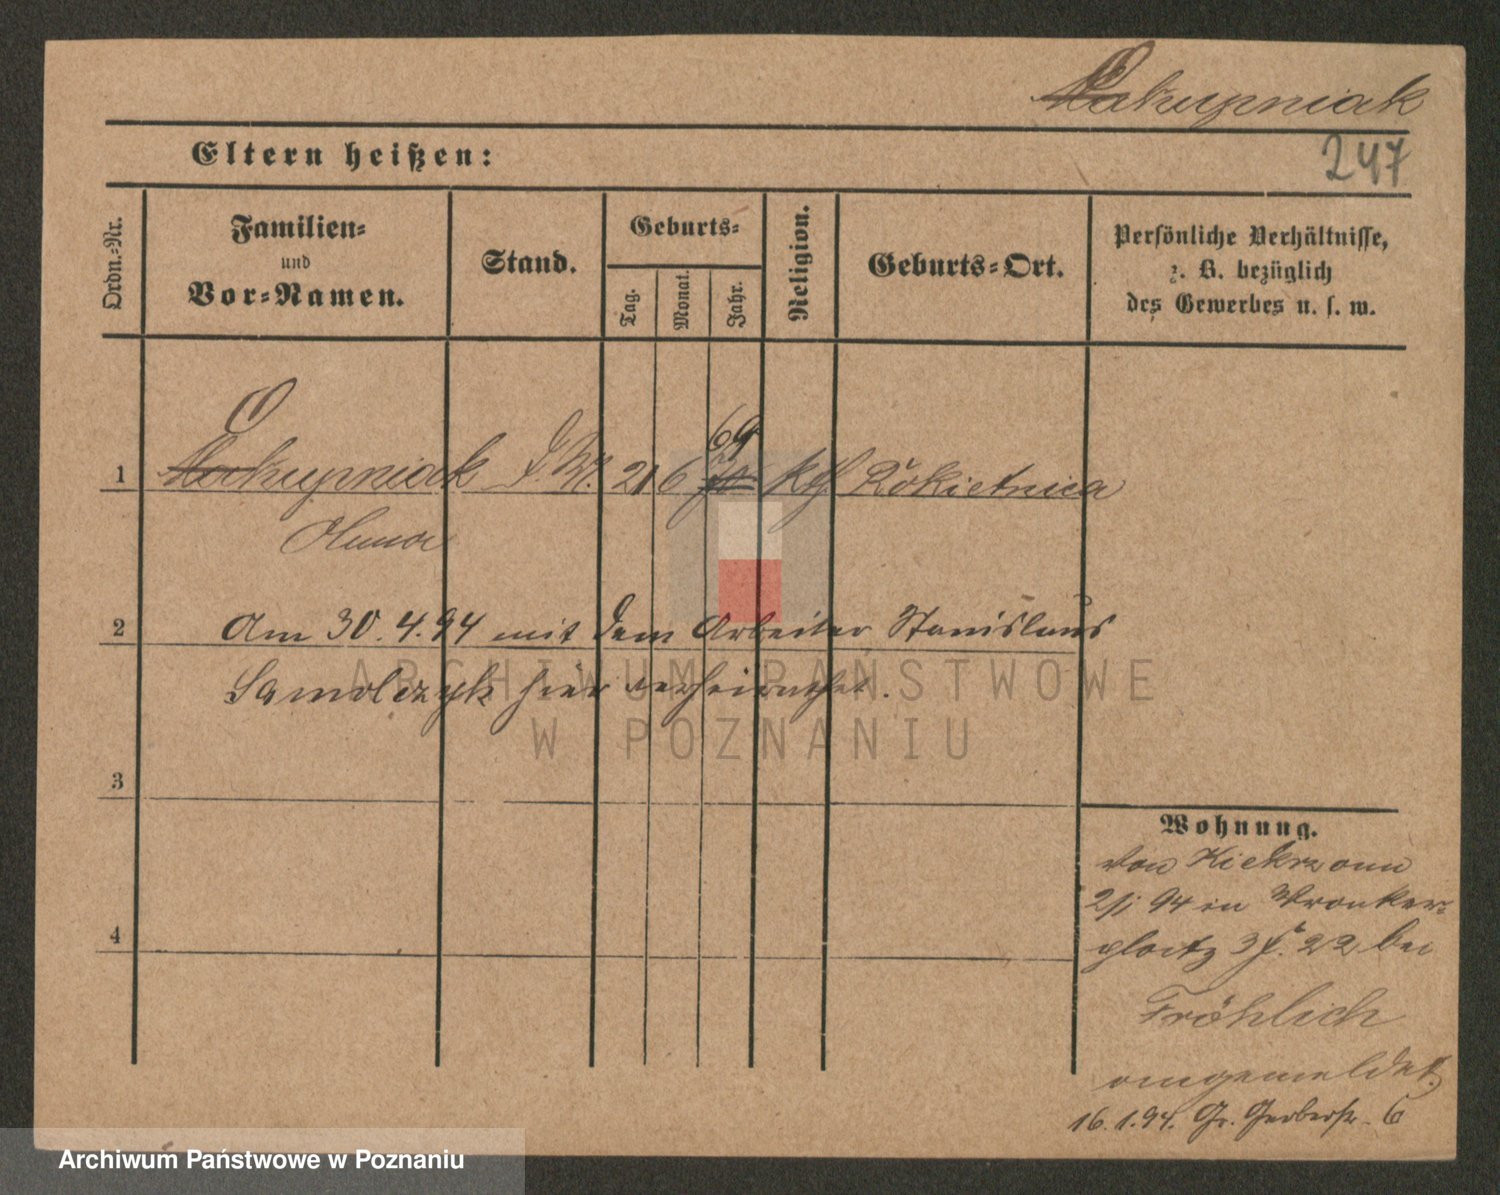 Oakupniak
247
Eltern heißen:
Ordn.-Nr.
Familien-
und
Vor-Namen.
Stand.
Geburts-
Tag.
Monat.
Jahr.
Religion.
Geburts-Ort.
Persönliche Verhältnisse,
z. B. bezüglich
des Gewerbes u. s. w.
1
kupniak
21 6 69 kth Rokietnica
2
Am 30.4.94 mit dem Arbeiter Stanislaus
Samolczyk hier verheirathet.
ARCHIWUM PAŃSTWOWE
W POZNANIU
3
4
Wohnung.
von Kiekrz am
2/1 94 in Wronker-
platz 3 22 bei
Fröhlich
angemeldet
16.1.94. Gr. Gerberstr. 6
Archiwum Państwowe w Poznaniu